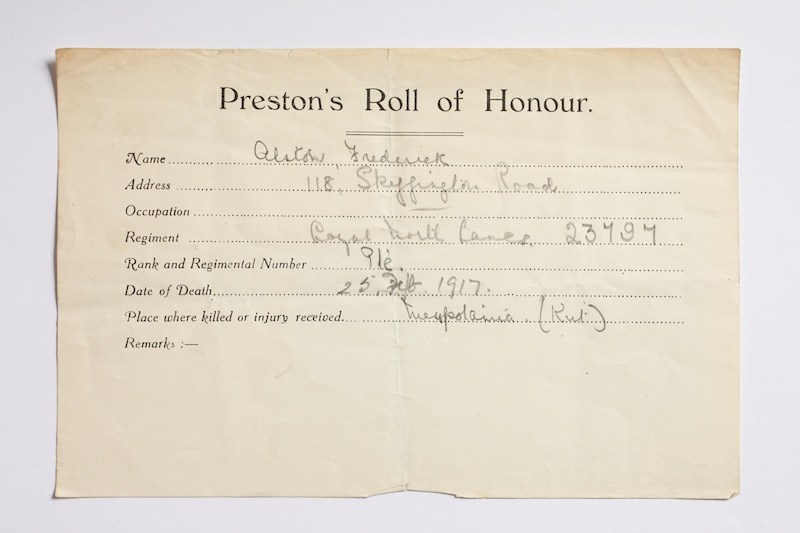 Preston's Roll of Honour.
Name Alston, Frederick
Address 118, Skeffington Road
Occupation
Regiment Loyal North Lancs. 23797
Rank and Regimental Number Pte.
Date of Death 25. Feb. 1917.
Place where killed or injury received. (Kut)
Remarks :—